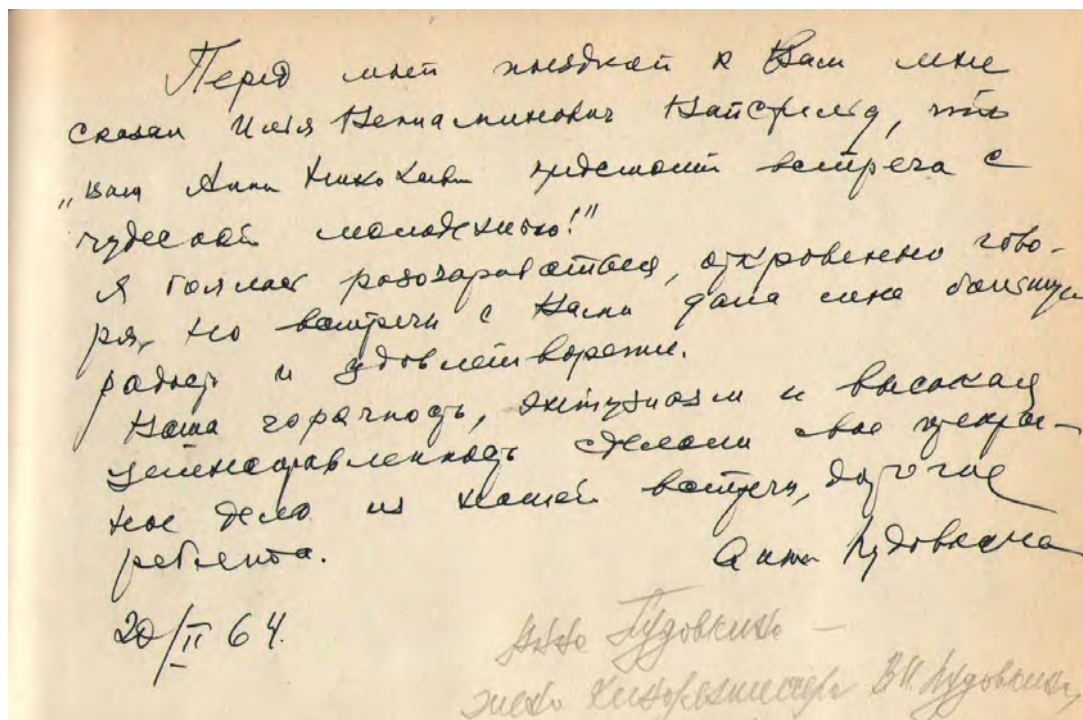 Перед моей поездкой к Вам мне
сказал Илья Вениаминович Вайсфельд, что
„Вам Анна Николаевна предстоит встреча с
чудесной молодежью!"
Я боялась разочароваться, откровенно гово-
ря, но встреча с Вами дала мне большую
радость и удовлетворение.
Ваша горячность, энтузиазм и высокая
целенаправленность сделали свое прекрас-
ное дело из нашей встречи, дорогие
ребята.
Анна Пудовкина
20/II 64.
Анна Пудовкина —
жена кинорежиссера В.И. Пудовкина